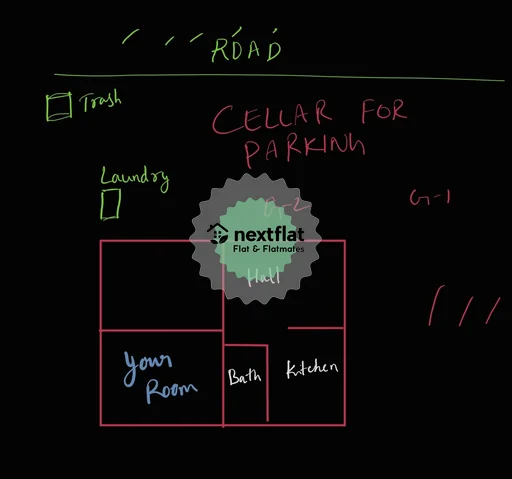 ROAD
Trash
CELLAR FOR
PARKING
Laundry
G-2
G-1
nextflat
Flat & Flatmates
Hall
Your
Room
Bath
Kitchen